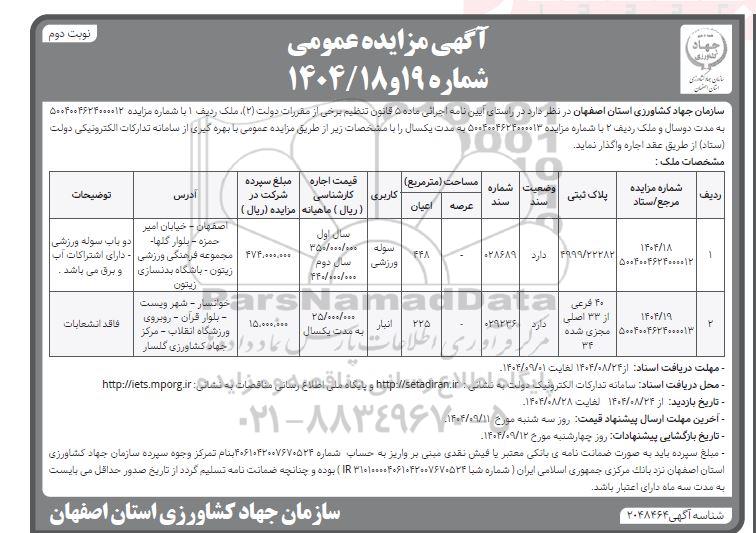 نوبت دوم
آگهی مزایده عمومی
شماره ۱۹و۱۴۰۴/۱۸
جهاد کشاورزی
سازمان جهاد کشاورزی
استان اصفهان
سازمان جهاد کشاورزی استان اصفهان در نظر دارد در راستای آیین نامه اجرائی ماده ۵ قانون تنظیم برخی از مقررات دولت (۲)، ملک ردیف ۱ با شماره مزایده ۵۰۰۴۰۰۴۶۲۴۰۰۰۰۱۲
به مدت دوسال و ملک ردیف ۲ با شماره مزایده ۵۰۰۴۰۰۴۶۲۴۰۰۰۰۱۳ به مدت یکسال را با مشخصات زیر از طریق مزایده عمومی با بهره گیری از سامانه تدارکات الکترونیکی دولت
(ستاد) از طریق عقد اجاره واگذار نماید.
مشخصات ملک :
ردیف | شماره مزایده مرجع/ستاد | پلاک ثبتی | وضعیت سند | شماره سند | مساحت (مترمربع) عرصه | اعیان | کاربری | قیمت اجاره کارشناسی ( ریال ) ماهیانه | مبلغ سپرده شرکت در مزایده (ریال ) | آدرس | توضیحات
۱ | ۱۴۰۴/۱۸ ۵۰۰۴۰۰۴۶۲۴۰۰۰۰۱۲ | ۴۹۹۹/۲۲۲۸۲ | دارد | ۰۲۸۶۸۹ | - | ۴۴۸ | سوله ورزشی | سال اول ۳۵۰/۰۰۰/۰۰۰ سال دوم ۴۴۰/۰۰۰/۰۰۰ | ۴۷۴.۰۰۰.۰۰۰ | اصفهان – خیابان امیر حمزه – بلوار گلها- مجموعه فرهنگی ورزشی زیتون - باشگاه بدنسازی زیتون | دو باب سوله ورزشی - دارای اشتراکات آب و برق می باشد .
۲ | ۱۴۰۴/۱۹ ۵۰۰۴۰۰۴۶۲۴۰۰۰۰۱۳ | ۴۰ فرعی از ۳۳ اصلی مجزی شده ۳۴ | دارد | ۰۲۹۲۳۶ | - | ۲۲۵ | انبار | ۲۵/۰۰۰/۰۰۰ به مدت یکسال | ۱۵.۰۰۰.۰۰۰ | خوانسار – شهر ویست – بلوار قرآن – روبروی ورزشگاه انقلاب – مرکز جهاد کشاورزی گلسار | فاقد انشعابات
- مهلت دریافت اسناد: از۱۴۰۴/۰۸/۲۴ لغایت ۱۴۰۴/۰۹/۰۱.
- محل دریافت اسناد: سامانه تدارکات الکترونیک دولت به نشانی : http://setadiran.ir و پایگاه ملی اطلاع رسانی مناقصات به نشانی : http://iets.mporg.ir
- تاریخ بازدید: از ۱۴۰۴/۰۸/۲۴ لغایت ۱۴۰۴/۰۸/۲۸.
- آخرین مهلت ارسال پیشنهاد قیمت: روز سه شنبه مورخ ۱۴۰۴/۰۹/۱۱.
- تاریخ بازگشایی پیشنهادات: روز چهارشنبه مورخ ۱۴۰۴/۰۹/۱۲.
- مبلغ سپرده باید به صورت ضمانت نامه ی بانکی معتبر یا فیش نقدی مبنی بر واریز به حساب شماره ۴۰۶۱۰۴۲۰۰۷۶۷۰۵۲۴بنام تمرکز وجوه سپرده سازمان جهاد کشاورزی
استان اصفهان نزد بانک مرکزی جمهوری اسلامی ایران ( شماره شبا IR ۳۱۰۱۰۰۰۰۴۰۶۱۰۴۲۰۰۷۶۷۰۵۲۴ ) بوده و چنانچه ضمانت نامه تسلیم گردد از تاریخ صدور حداقل می بایست
به مدت سه ماه دارای اعتبار باشد.
شناسه آگهی۲۰۴۸۴۶۴
سازمان جهاد کشاورزی استان اصفهان
ParsNamadData
مرکز فرآوری اطلاعات پارس نماد داده ها
پایگاه اطلاع رسانی مناقصه و مزایده
۰۲۱-۸۸۳۴۹۶۷۰